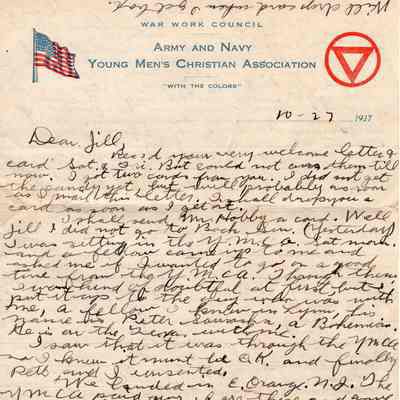 Will drop card when I get back.
WAR WORK COUNCIL
ARMY AND NAVY
YOUNG MEN'S CHRISTIAN ASSOCIATION
"WITH THE COLORS"
10-27 1917
Dear Jill,
Rec'd your very welcome letter &
card Sat. & Fri. But could not ans them till
now. I got two cards from you. I did not get
the candy yet, but will probably as soon
as I mail this letter. I shall drop you a
card as soon as I get it.
I shall send Mr Hobby a card. Well
Jill I did not go to Bach. Sun. (Yesterday)
I was sitting in the Y.M.C.A. Sat morn.
and a fellow came up to me and
ask me if I wanted to go to a good
time from the Y.M.C.A. I thought then
I was kind of doubtful at first but I
put it up to the guy who was with
me, a fellow I know in Lynn, his
name is Peter, a Bohemian.
He is on the
I saw that it was through the YMCA
so I knew it must be O.K. and finally
Pete and I consented.
We landed in E. Orange N.J. The
YMCA paid our